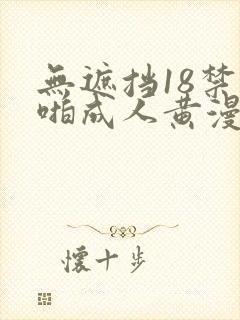 無遮挡18禁
啪成人黄漫
懷十步